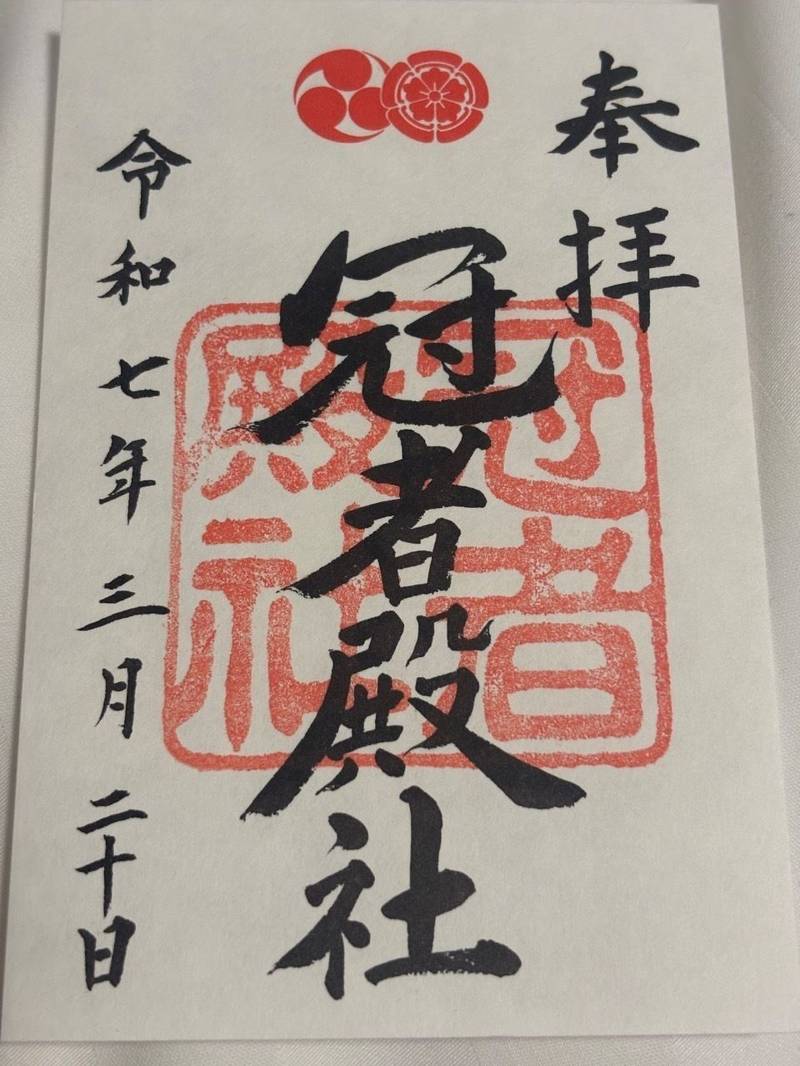 奉拝
冠者殿社
冠者殿社
令和七年三月二十日